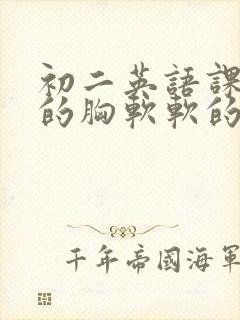 初二英語課
的胸軟軟的
千年帝國海軍